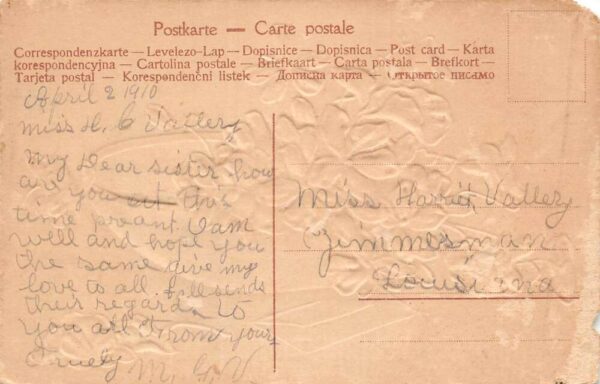 Postkarte — Carte postale
Correspondenzkarte — Levelezo-Lap — Dopisnice — Dopisnica — Post card — Karta
korespondencyjna — Cartolina postale — Briefkaart — Carta postala — Brefkort —
Tarjeta postal — Korespondenčni listek — Дописна карта — Открытое писмо
April 2 1910
Miss H. C Vallery
My Dear sister how
are you at this
time preant. I am
well and hope you
the same give my
love to all. all sends
their regards to
you all From your
Truely M. G. V.
Miss Harriet Vallery
Zimmerman
Lousiana